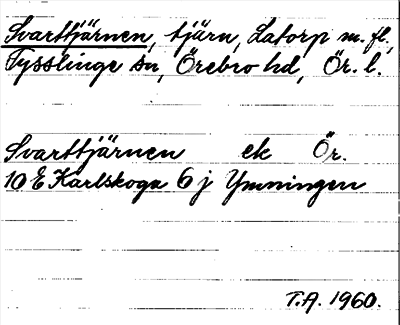 Svarttjärnen, tjärn, Latorp m. fl.,
Tysslinge sn, Örebro hd, Ör. l.
Svarttjärnen ek Ör.
10 E Karlskoga 6 j Ymningen
T.A. 1960.